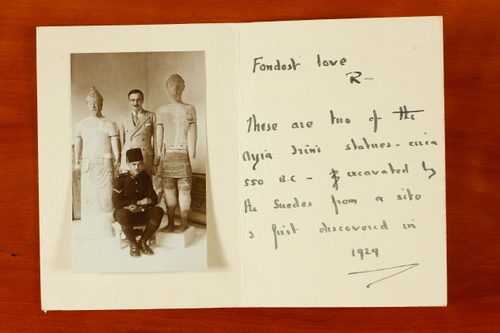 Fondest love
R-
These are two of the
Ayia Irini statues - circa
550 B.C - excavated by
the Swedes from a site
s first discovered in
1929